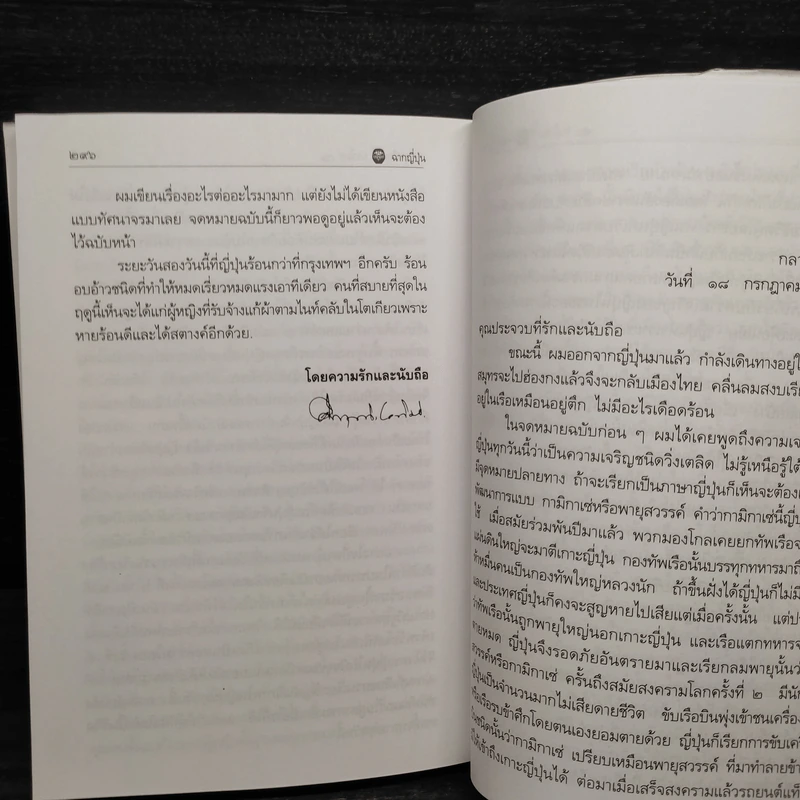 ๒๙๖
ฉากญี่ปุ่น
ผมเขียนเรื่องอะไรต่ออะไรมามาก แต่ยังไม่ได้เขียนหนังสือ
แบบทัศนาจรมาเลย จดหมายฉบับนี้ก็ยาวพอดูอยู่แล้วเห็นจะต้อง
ไว้ฉบับหน้า
ระยะวันสองวันนี้ที่ญี่ปุ่นร้อนกว่าที่กรุงเทพฯ อีกครับ ร้อน
อบอ้าวชนิดที่ทำให้หมดเรี่ยวหมดแรงเอาทีเดียว คนที่สบายที่สุดใน
ฤดูนี้เห็นจะได้แก่ผู้หญิงที่รับจ้างแก้ผ้าตามไนท์คลับในโตเกียวเพราะ
หายร้อนดีและได้สตางค์อีกด้วย.
โดยความรักและนับถือ
กลา
วันที่ ๑๘ กรกฎาคม
คุณประจวบที่รักและนับถือ
ขณะนี้ ผมออกจากญี่ปุ่นมาแล้ว กำลังเดินทางอยู่ใ
สมุทรจะไปฮ่องกงแล้วจึงจะกลับเมืองไทย คลื่นลมสงบเรีย
อยู่ในเรือเหมือนอยู่ตึก ไม่มีอะไรเดือดร้อน
ในจดหมายฉบับก่อน ๆ ผมได้เคยพูดถึงความเจ
ญี่ปุ่นทุกวันนี้ว่าเป็นความเจริญชนิดวิ่งเตลิด ไม่รู้เหนือรู้ใต้
มีจุดหมายปลายทาง ถ้าจะเรียกเป็นภาษาญี่ปุ่นก็เห็นจะต้องเ
พัฒนาการแบบ กามิกาเซ่หรือพายุสวรรค์ คำว่ากามิกาเซ่นี้ญี่ปุ
ใช้ เมื่อสมัยร่วมพันปีมาแล้ว พวกมองโกลเคยยกทัพเรือจ
แผ่นดินใหญ่จะมาตีเกาะญี่ปุ่น กองทัพเรือนั้นบรรทุกทหารมาถึ
ห้าหมื่นคนเป็นกองทัพใหญ่หลวงนัก ถ้าขึ้นฝั่งได้ญี่ปุ่นก็ไม่มี
และประเทศญี่ปุ่นก็คงจะสูญหายไปเสียแต่เมื่อครั้งนั้น แต่ปร
ว่าทัพเรือนั้นถูกพายุใหญ่นอกเกาะญี่ปุ่น และเรือแตกทหารจ
ตายหมด ญี่ปุ่นจึงรอดภัยอันตรายมาและเรียกลมพายุนั้นว
สวรรค์หรือกามิกาเซ่ ครั้นถึงสมัยสงครามโลกครั้งที่ ๒ มีนัก
ญี่ปุ่นเป็นจำนวนมากไม่เสียดายชีวิต ขับเรือบินพุ่งเข้าชนเครื่อง
หรือเรือรบข้าศึกโดยตนเองยอมตายด้วย ญี่ปุ่นก็เรียกการขับเครื
บินชนิดนั้นว่ากามิกาเซ่ เปรียบเหมือนพายุสวรรค์ ที่มาทำลายข้า
ให้เข้าถึงเกาะญี่ปุ่นได้ ต่อมาเมื่อเสร็จสงครามแล้วรถยนต์แท็